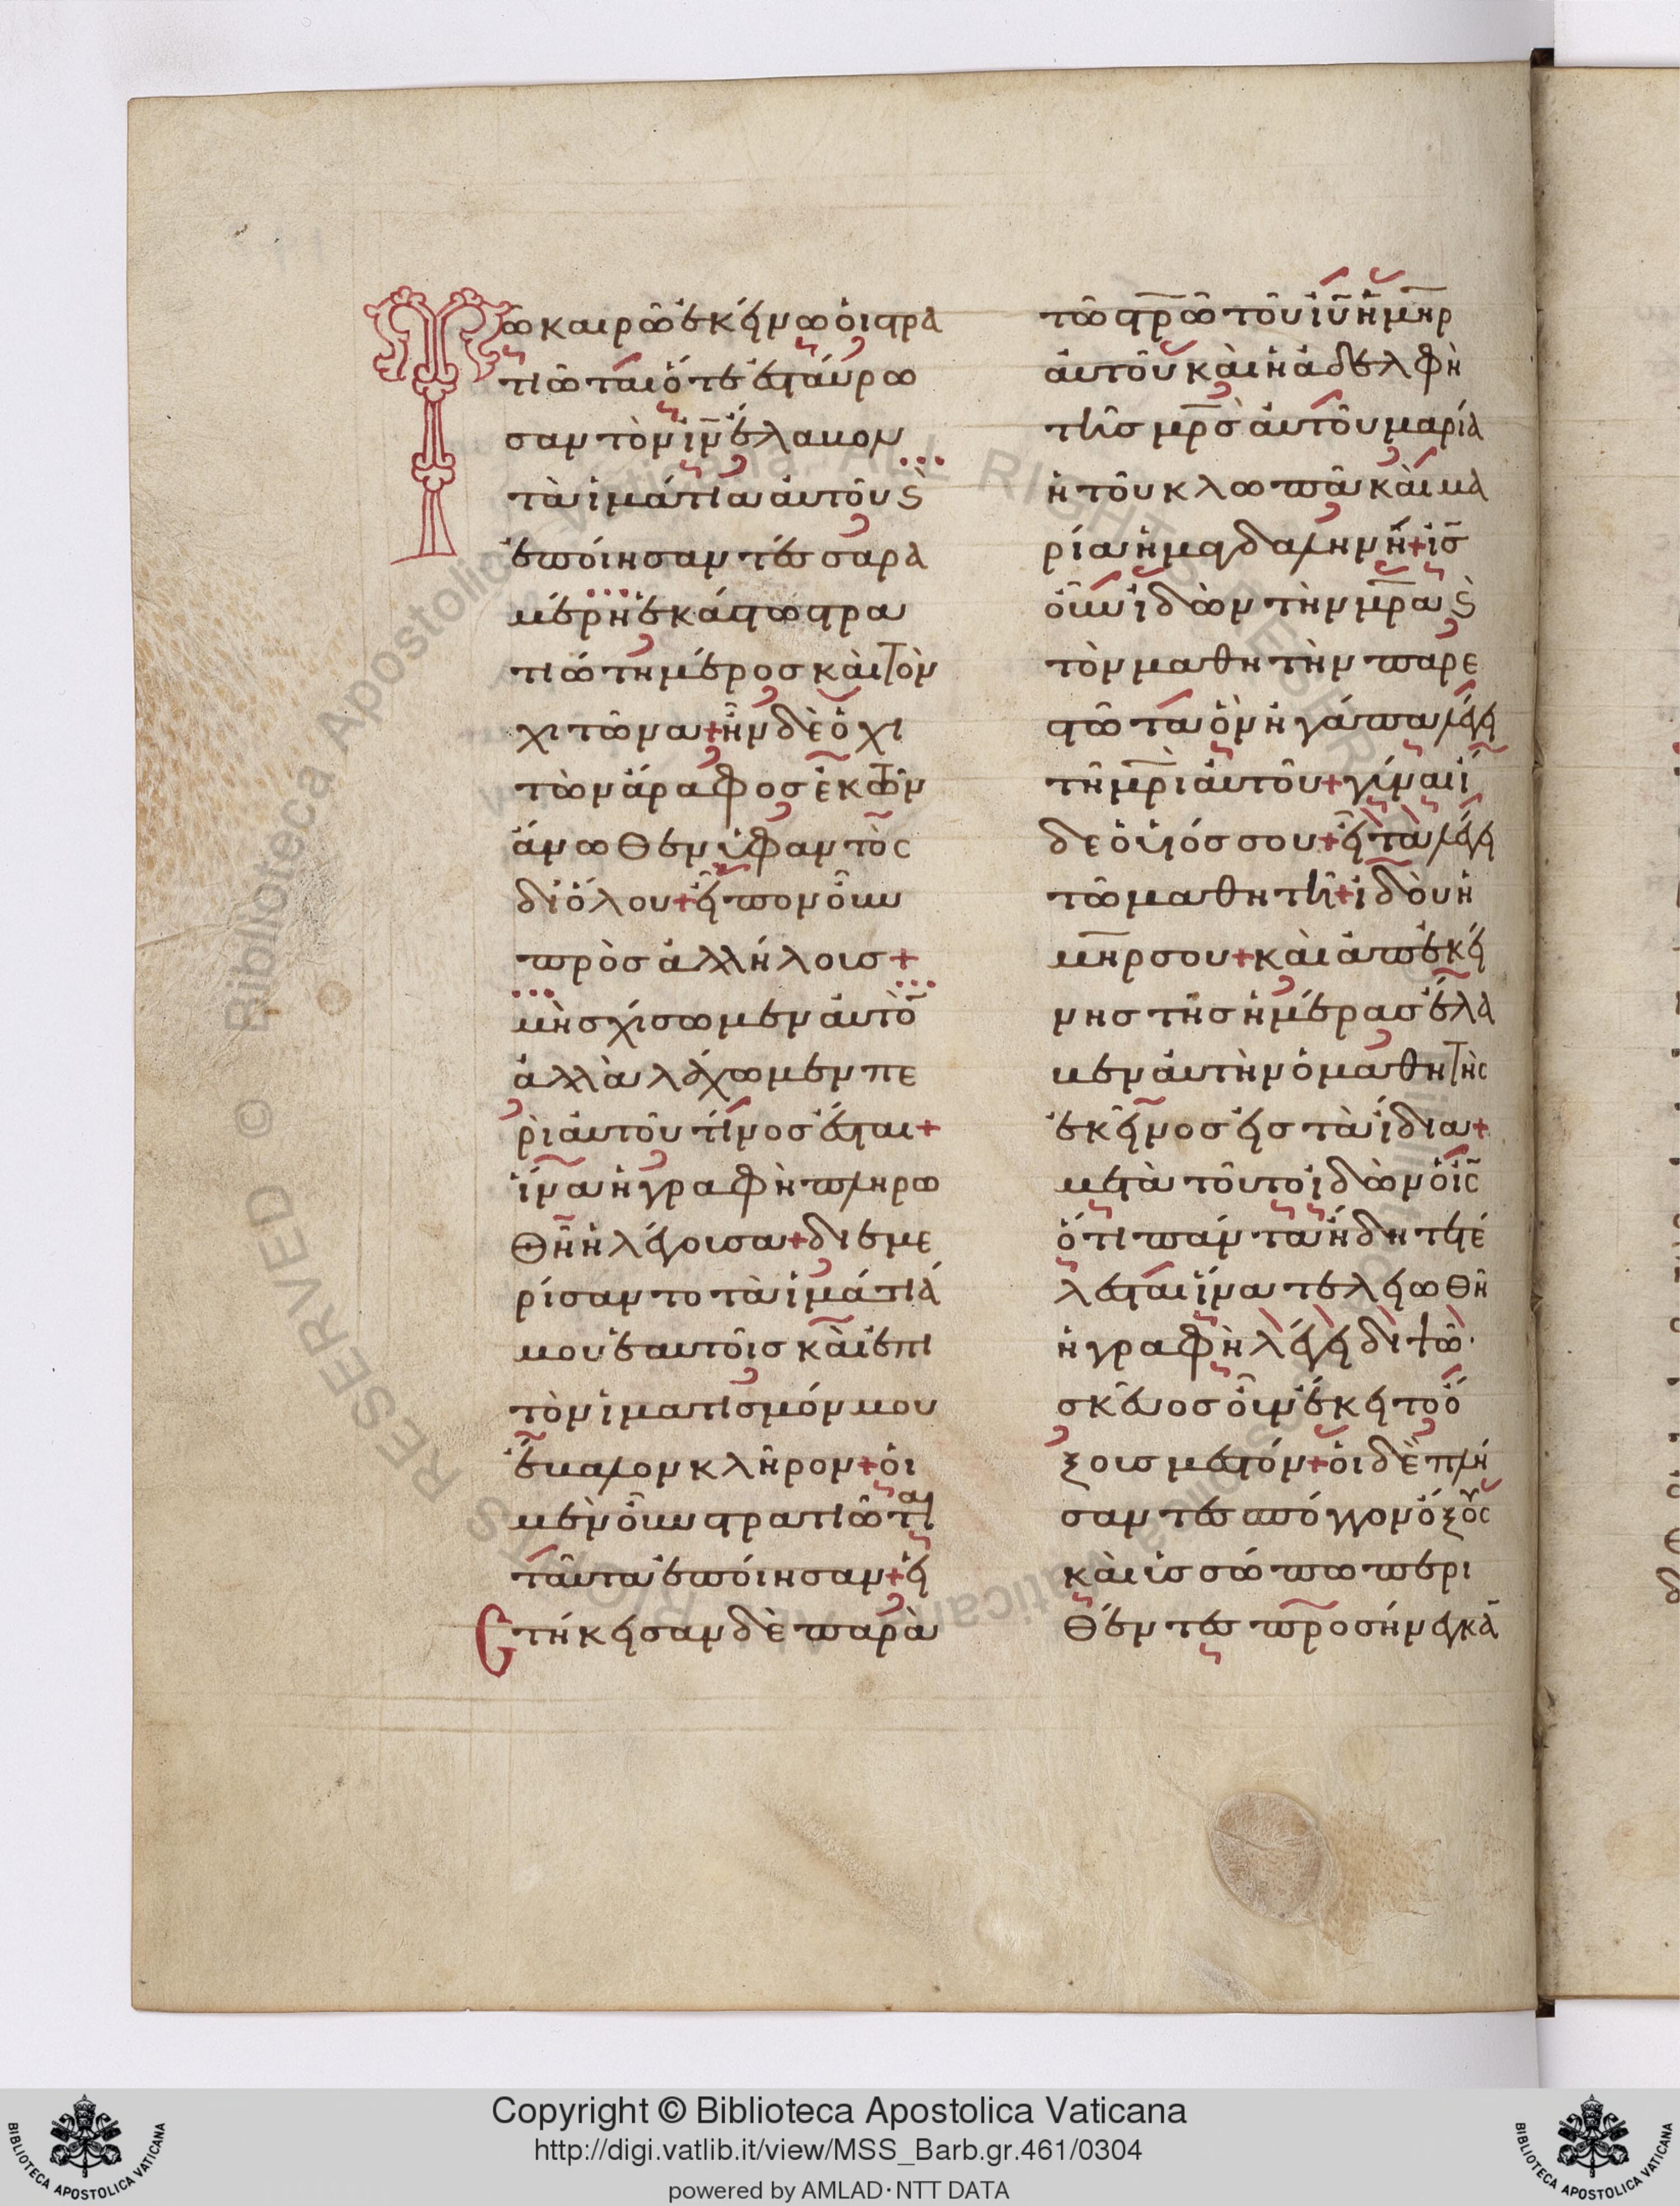 Τῶ καιρῶ ἐκείνω οἱ στρα
τιῶται ὅτε ἐσταύρω
σαν τὸν ἰν ἔλαβον
τὰ ἱμάτια αὐτοῦ ϗ
ἐποίησαν τέσσαρα
μέρη ἑκάστω στρα
τιώτη μέρος καὶ τὸν
χιτῶνα + ἦν δὲ ὁ χι
τὼν ἄραφος ἐκ τῶν
ἄνωθεν ὑφαντὸς
δι' ὅλου + εἶπον οὖν
πρὸς ἀλλήλοις +
μὴ σχίσωμεν αὐτὸ
ἀλλὰ λάχωμεν πε
ρὶ αὐτοῦ τίνος ἔσται +
ἵνα ἡ γραφὴ πληρω
θῆ ἡ λέγουσα + διεμε
ρίσαντο τὰ ἱμάτιά
μου ἑαυτοῖς καὶ ἐπὶ
τὸν ἱματισμόν μου
ἔβαλον κλῆρον + οἱ
μὲν οὖν στρατιῶται
ταῦτα ἐποίησαν + εἱ
στήκεισαν δὲ παρὰ
τῶ στρῶ τοῦ ἰυ ἡ μηρ
αὐτοῦ καὶ ἡ ἀδελφὴ
τῆς μρς αὐτοῦ μαρία
ἡ τοῦ κλωπᾶ καὶ μα
ρία ἡ μαγδαληνή + ις
οὖν ἰδὼν τὴν μρα ϗ
τὸν μαθητὴν παρε
στῶτα ὃν ἠγάπα λέγει
τῆ μρι αὐτοῦ + γύναι ἴ
δε ὁ υἱός σου + εἶτα λέγει
τῶ μαθητῆ + ἰδοὺ ἡ
μηρ σου + καὶ ἀπ' ἐκεί
νης τῆς ἡμέρας ἔλα
βεν αὐτὴν ὁ μαθητὴς
ἐκεῖνος εἰς τὰ ἴδια +
μετὰ τοῦτο ἰδὼν ὁ ις
ὅτι πάντα ἤδη τετέ
λεσται ἵνα τελειωθῆ
ἡ γραφὴ λέγει διψῶ·
σκεῦος οὖν ἔκειτο ὄ
ξους μεστόν + οἱ δὲ πλή
σαντες σπόγγον ὄξους
καὶ ὑσσώπω περι
θέντες προσήνεγκα
Copyright © Biblioteca Apostolica Vaticana
http://digi.vatlib.it/view/MSS_Barb.gr.461/0304
powered by AMLAD·NTT DATA